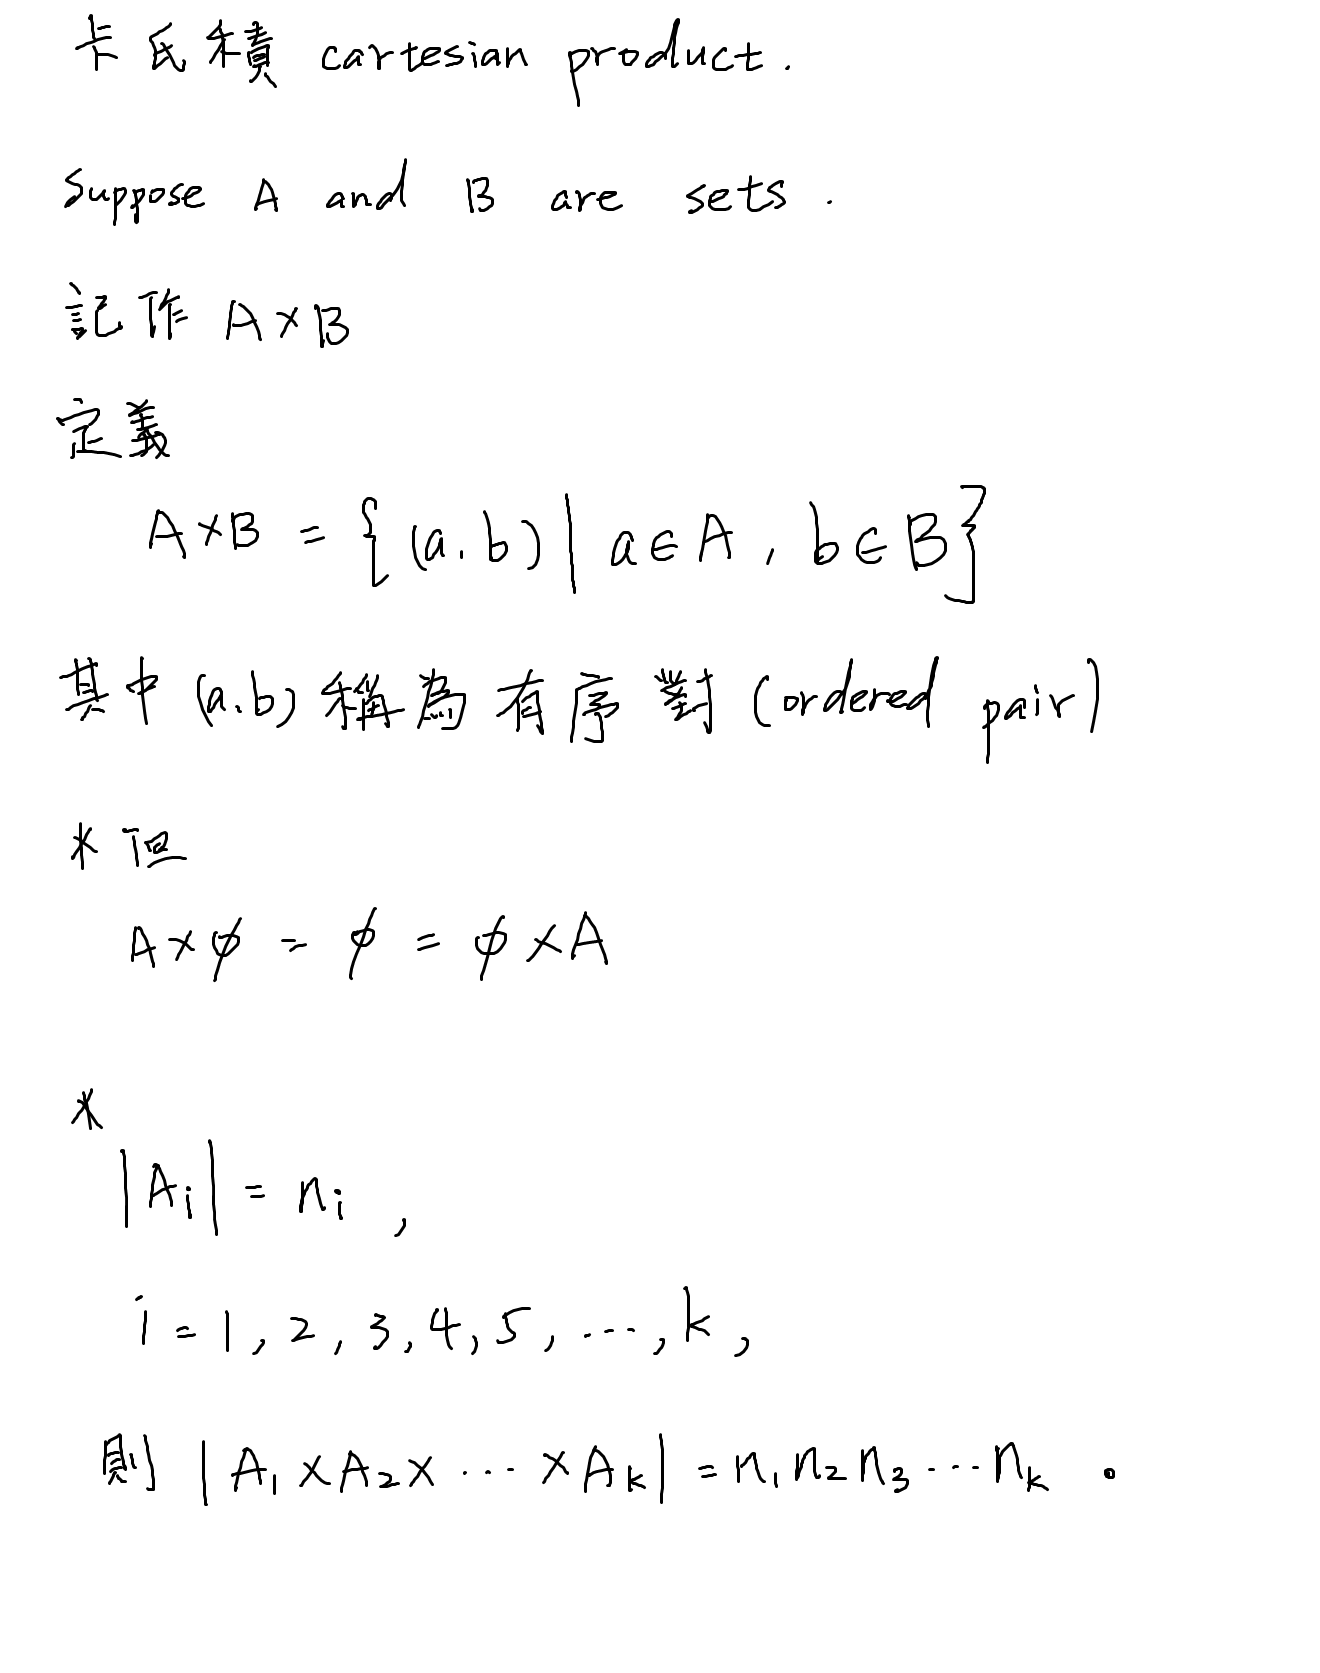 卡氏積 cartesian product.
Suppose A and B are sets.
記作 A×B
定義
A×B = {(a.b) | a∈A, b∈B}
其中 (a.b) 稱為有序對 (ordered pair)
* 但
A×∅ = ∅ = ∅×A
*
|Aᵢ| = nᵢ ,
i = 1, 2, 3, 4, 5, ..., k,
則 |A₁×A₂× ... ×Aₖ| = n₁n₂n₃...nₖ 。